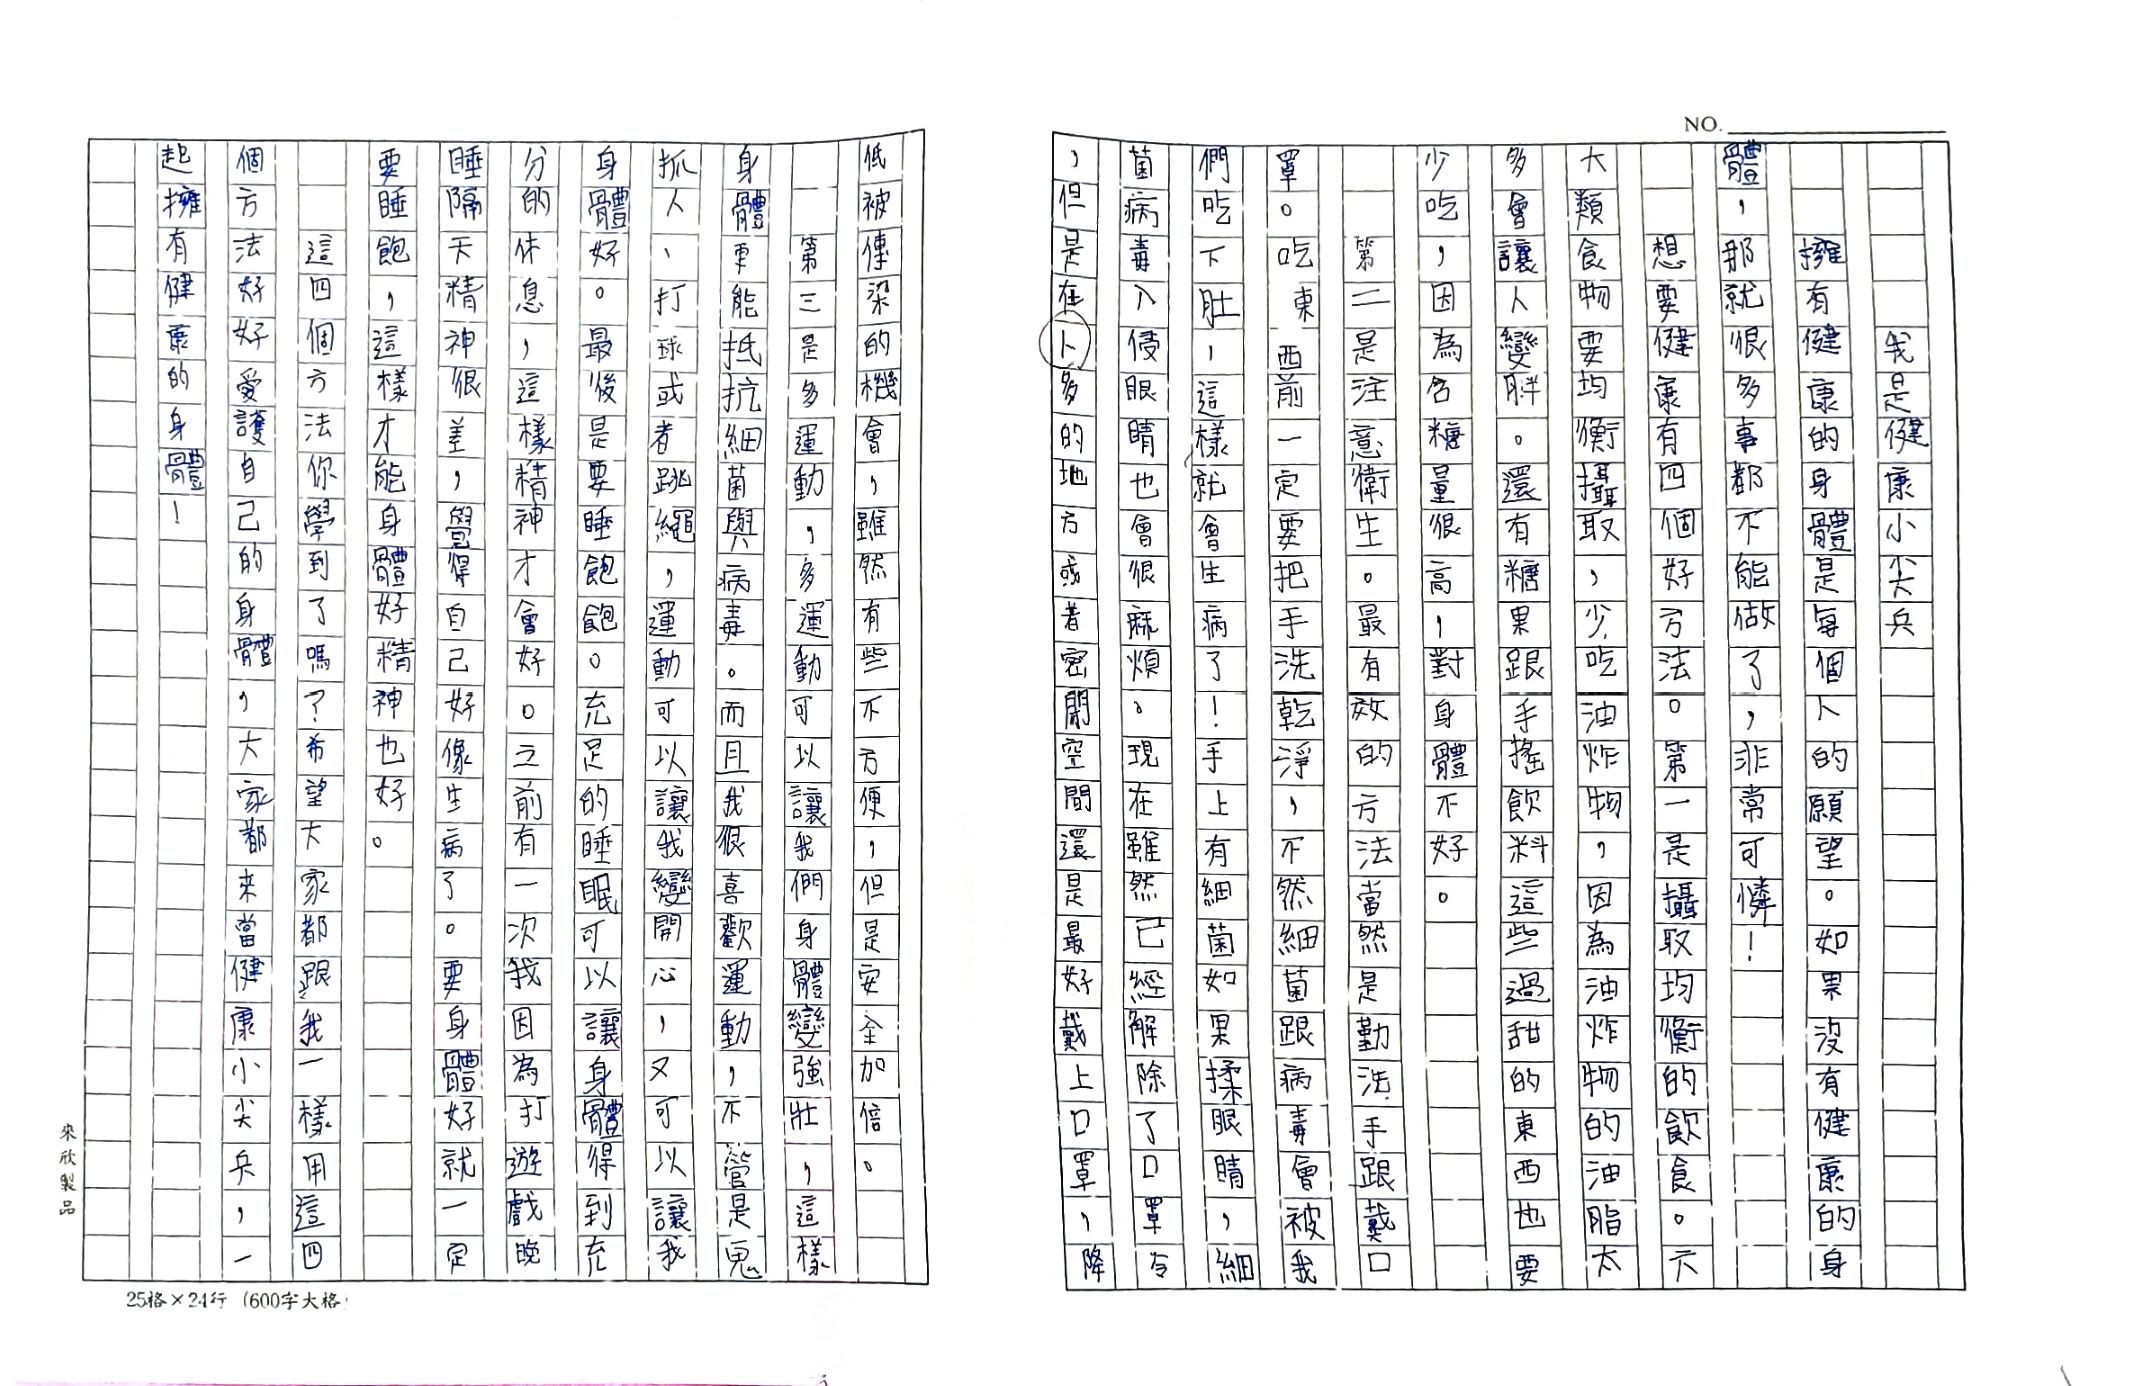 NO.
我是健康小尖兵
擁有健康的身體是每個人的願望。如果沒有健康的身
體，那就很多事都不能做了，非常可憐！
想要健康有四個好方法。第一是攝取均衡的飲食。六
大類食物要均衡攝取，少吃油炸物，因為油炸物的油脂太
多會讓人變胖。還有糖果跟手搖飲料這些過甜的東西也要
少吃，因為含糖量很高，對身體不好。
第二是注意衛生。最有效的方法當然是勤洗手跟戴口
罩。吃東西前一定要把手洗乾淨，不然細菌跟病毒會被我
們吃下肚，這樣就會生病了！手上有細菌如果揉眼睛，細
菌病毒入侵眼睛也會很麻煩。現在雖然已經解除了口罩令
，但是在人多的地方或者密閉空間還是最好戴上口罩，降
低被傳染的機會，雖然有些不方便，但是安全加倍。
第三是多運動，多運動可以讓我們身體變強壯，這樣
身體更能抵抗細菌與病毒。而且我很喜歡運動，不管是鬼
抓人、打球或者跳繩，運動可以讓我變開心，又可以讓我
身體好。最後是要睡飽飽。充足的睡眠可以讓身體得到充
分的休息，這樣精神才會好。之前有一次我因為打遊戲晚
睡隔天精神很差，覺得自己好像生病了。要身體好就一定
要睡飽，這樣才能身體好精神也好。
這四個方法你學到了嗎？希望大家都跟我一樣用這四
個方法好好愛護自己的身體，大家都來當健康小尖兵，一
起擁有健康的身體！
來欣製品
25格×24行（600字大格